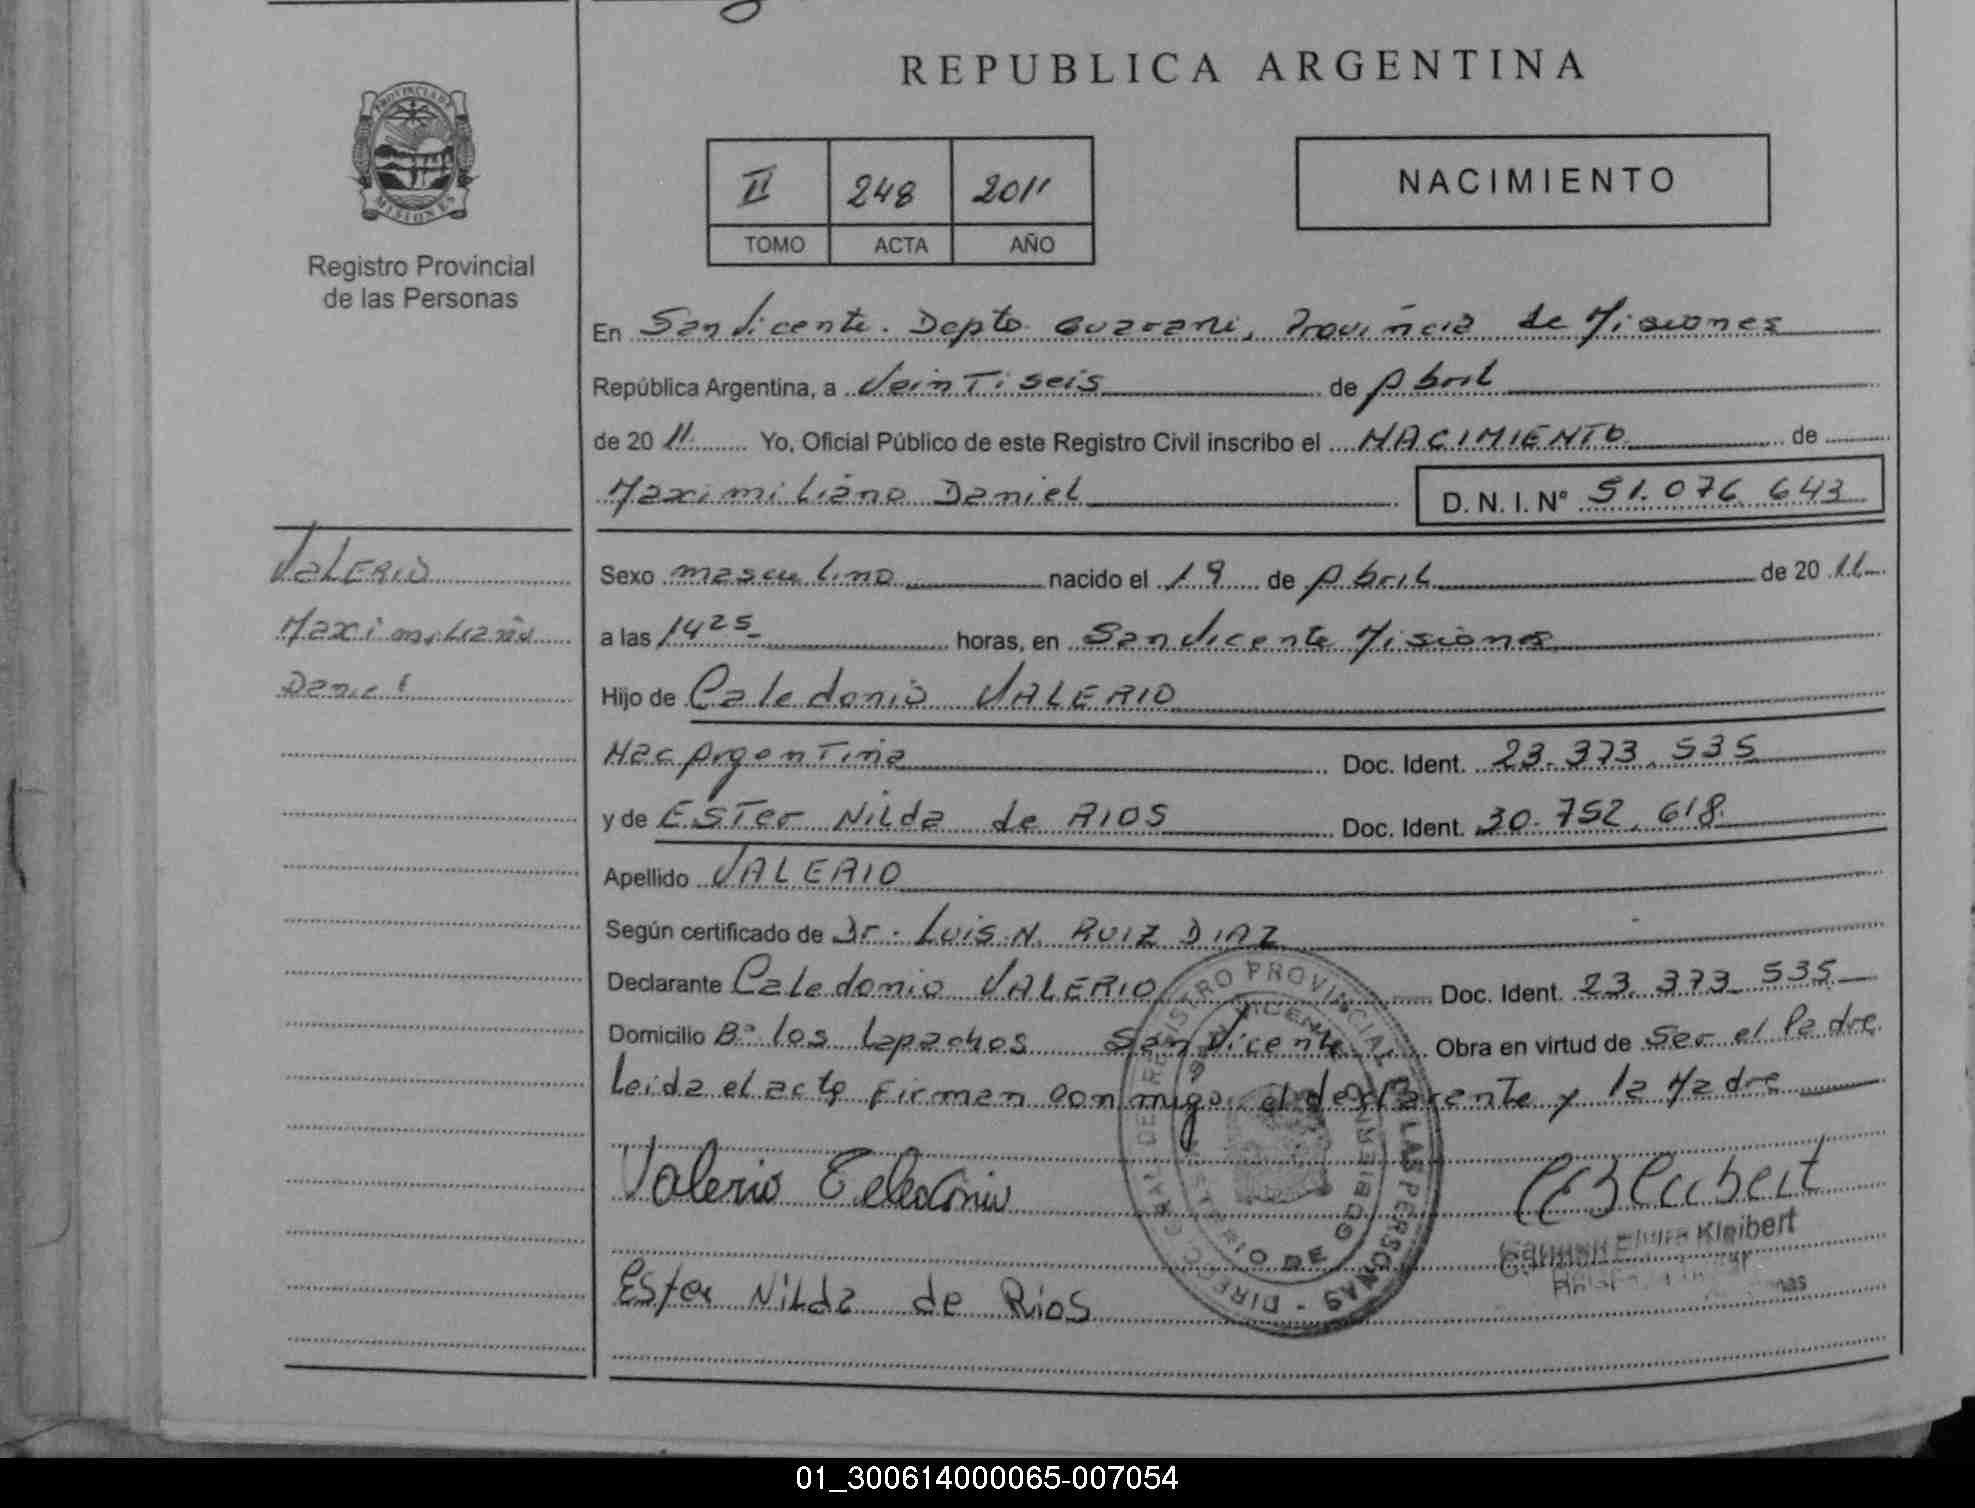 REPUBLICA ARGENTINA
PROVINCIA DE
MISIONES
Registro Provincial
de las Personas
II 248 2011
TOMO ACTA AÑO
NACIMIENTO
En San Vicente. Depto Guarani, Provincia de Misiones
República Argentina, a Veintiseis de Abril
de 20 11 Yo, Oficial Público de este Registro Civil inscribo el NACIMIENTO de
Maximiliano Daniel D. N. I. Nº 51.076.643
VALERIO
Maximiliano
Daniel
Sexo masculino nacido el 19 de Abril de 20 11
a las 14 25 horas, en San Vicente Misiones
Hijo de Celedonio VALERIO
Nac Argentina Doc. Ident. 23.373.535
y de ESTer Nilda de RIOS Doc. Ident. 30.752.618
Apellido VALERIO
Según certificado de Dr. Luis N. RUIZ DIAZ
Declarante Celedonio VALERIO Doc. Ident. 23.373.535
Domicilio Bº los Lapachos San Vicente Obra en virtud de Ser el Padre
Leida el acta Firman conmigo el declarente y la Madre
Valerio Celedonio
Kleibert
Ester Nilda de Rios
DIRECC. GRAL. DE REGISTRO PROVINCIAL DE LAS PERSONAS
SAN VICENTE
MINISTERIO DE GOBIERNO
01_300614000065-007054